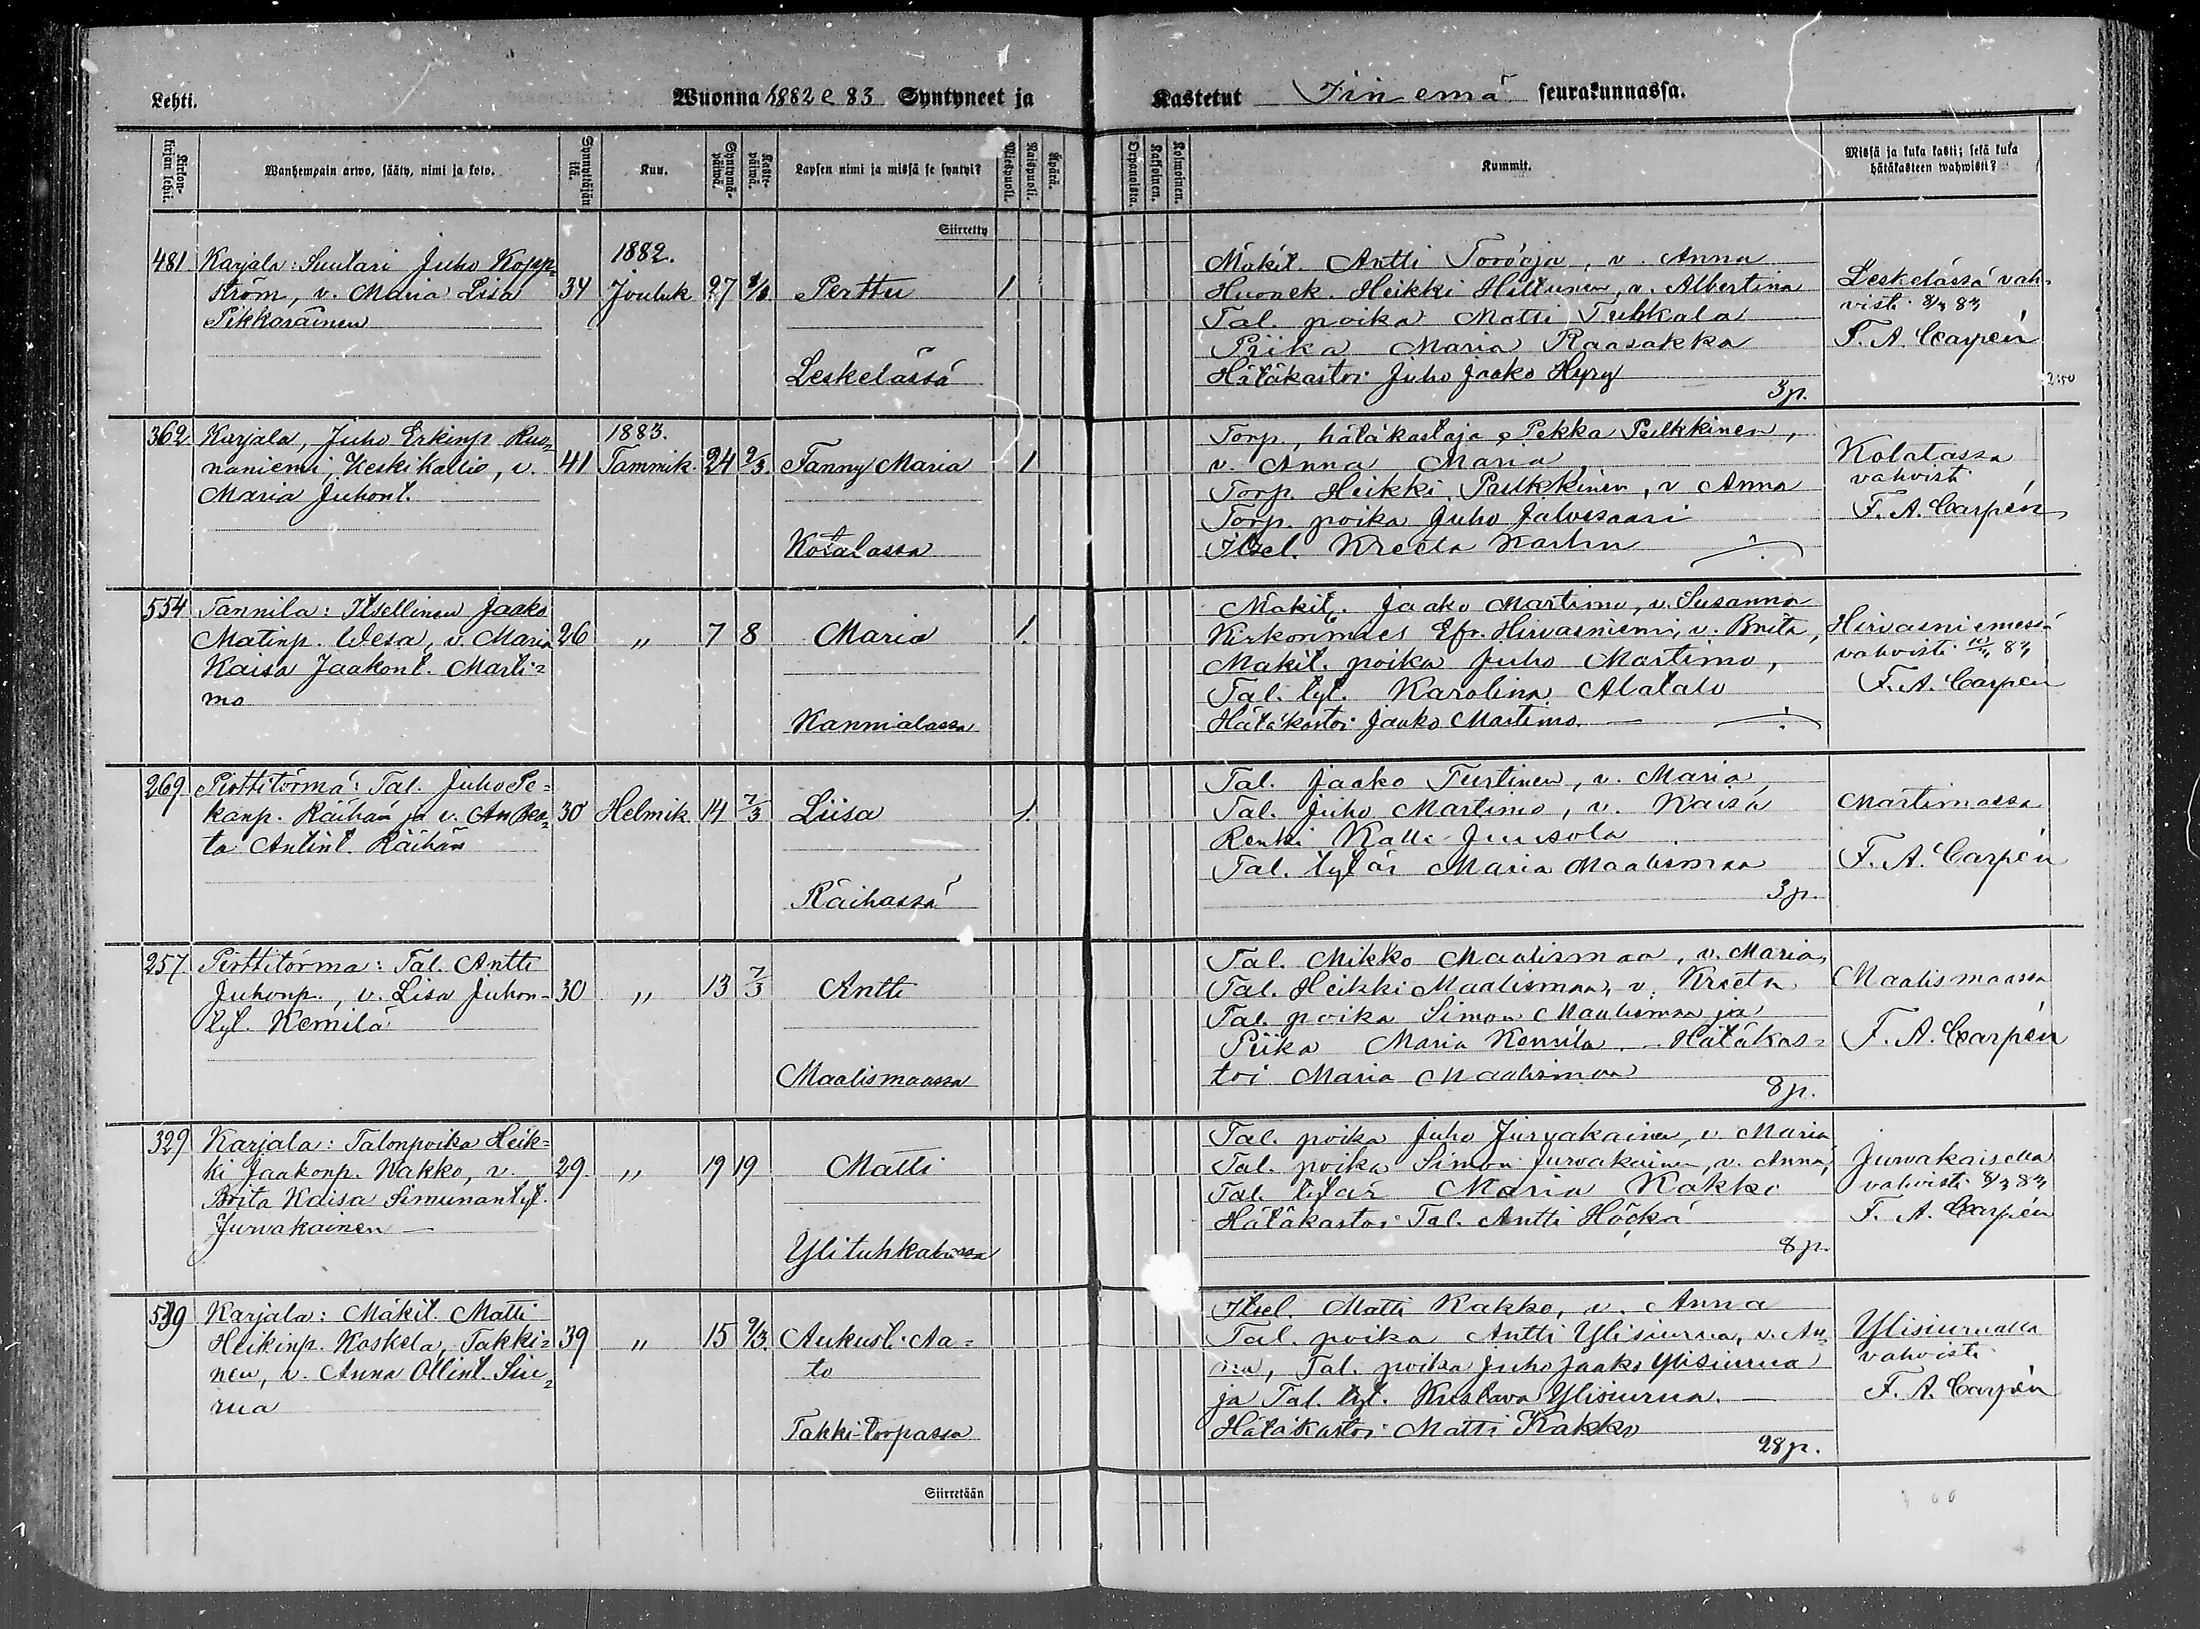 Lehti.
Wuonna 1882 e 83 Syntyneet ja
Kastetut Iin emä seurakunnassa.
Kirkonkirjan lehti.
Wanhempain arwo, sääty, nimi ja koto.
Synnyttäjän ikä.
Kuu.
Syntymäpäiwä.
Kastepäiwä.
Lapsen nimi ja missä se syntyi?
Miespuoli.
Waispuoli.
Äpärä.
Kaksoinen.
Kolmoinen.
Kummit.
Missä ja kuka kasti; sekä kuka
hätäkasteen wahwisti?
Siirretty
481 Karjala: Suutari Juho Kopp=
ström, v. Maria Lisa
Pikkaräinen
34
1882.
Jouluk 27
Perttu
Leskelässä
1
Mäkit. Antti Törröjä, v. Anna
Huonek. Heikki Hiltunen, v. Albertina
Tal. poika Matti Tuhkala
Piika Maria Raasakka
Hätäkastoi Juho Jaako Hyry
3p.
Leskelässä vah=
visti 8/3 83
F. A. Carpén
362 Karjala, Juho Erkinp Ruo=
naniemi, Keskikallio, v.
Maria Juhont.
41
1883.
Tammik. 24 2/3.
Fanny Maria
Kotalassa
1
Torp., hätäkastaja Pekka Pulkkinen,
v. Anna Maria,
Torp. Heikki Pulkkinen, v Anna
Torp. poika Juho Jalvesaari
Itsel. Kreeta
Kolatassa
vahvisti
F. A. Carpén
554 Tannila: Itsellinen Jaako
Matinp. Wesa, v. Maria
Kaisa Jaakont. Marti=
mo
26 „ 7 8
Maria
Kannialassa
1.
Mäkit. Jaako Martimo, v. Susanna
Kirkonmies Efr. Hirvasniemi, v. Brita,
Mäkit. poika Juho Martimo,
Tal. tyt. Karolina Alatalo
Hätäkastoi Jaako Martimo —
Hirvasniemessä
vahvisti 83
F. A. Carpén
269 Pirttitörmä: Tal. Juho Pe=
kanp. Räihän ja v. An Bea=
ta Antint. Räihän
30 Helmik. 14 7/3
Liisa
Räihässä
1.
Tal. Jaako Turtinen, v. Maria,
Tal. Juho Martimo, v. Kaisa
Renki Kalle Juusola
Tal. tytär Maria Maalismaa
3p.
Martimossa
F. A. Carpén
257 Pirttitörmä: Tal. Antti
Juhonp., v. Lisa Juhon=
tyt. Kemilä
30 „ 13 7/3
Antti
Maalismaassa
Tal. Mikko Maalismaa, v. Maria,
Tal. Heikki Maalismaa, v. Kreeta
Tal. poika Simon Maalismaa ja
Piika Maria Kemila. — Hätäkas=
toi Maria Maalismaa
8p.
Maalismaassa
F. A. Carpén
329 Karjala: Talonpoika Heik=
ki Jaakonp. Kakko, v.
Brita Kaisa Simunantyt.
Jurvakainen —
29. „ 19 19
Matti
Ylituhkalassa
Tal. poika Juho Jurvakainen, v. Maria
Tal. poika Simon Jurvakainen, v. Anna,
Tal. tytär Maria Kakko
Hätäkastoi Tal. Antti Höckä
8p.
Jurvakaisella
vahvisti 8/3 83
F. A. Carpén
Karjala: Mäkit. Matti
Heikinp. Koskela, Takki=
nen, v. Anna Ollint. Siu=
rua
39 „ 15 9/3.
Aukusti Aa=
to
Takki-torpassa
Itsel. Matti Kakko, v. Anna
Tal. poika Antti Ylisiurua, v. An=
na, Tal. poika Juho Jaako Ylisiurua
ja Tal. tyt. Kustava Ylisiurua. —
Hätäkastoi Matti Kakko
28p.
Ylisiurualla
vahvisti
F. A. Carpén
Siirretään